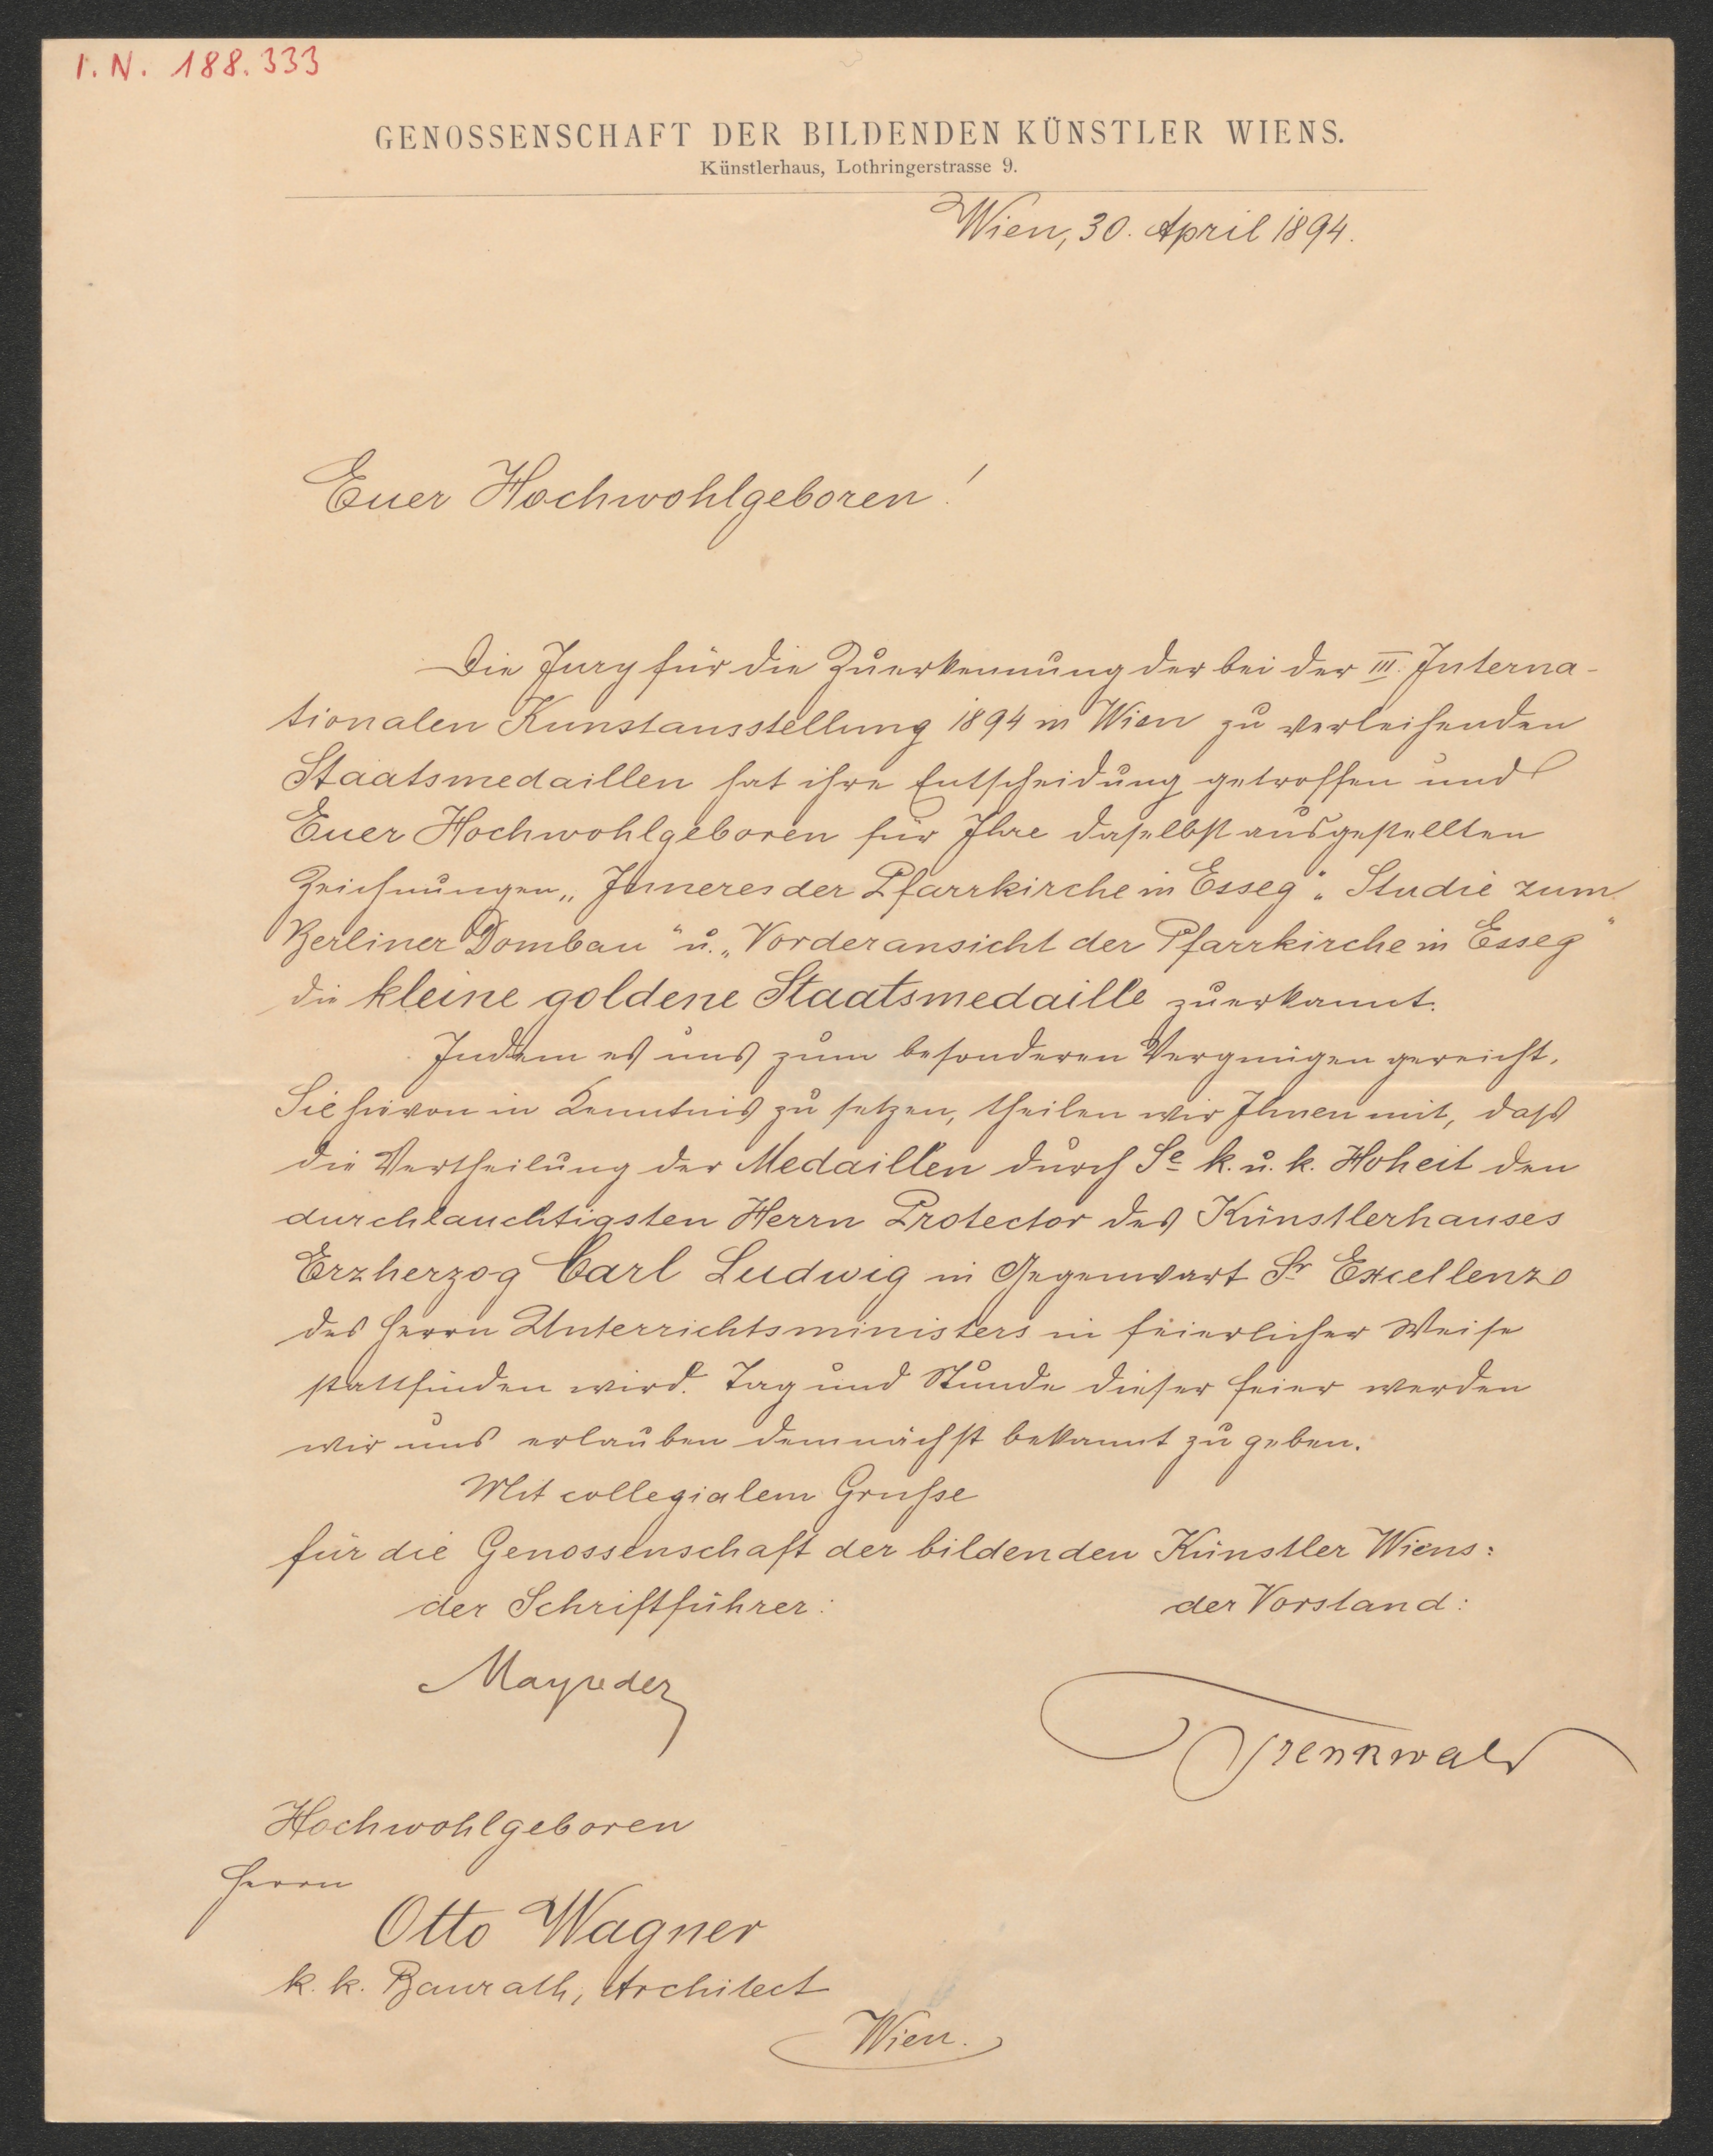 I. N. 188.333
GENOSSENSCHAFT DER BILDENDEN KÜNSTLER WIENS.
Künstlerhaus, Lothringerstrasse 9.
Wien, 30. April 1894.
Euer Hochwohlgeboren!
Die Jury für die Zuerkennung der bei der III. Interna-
tionalen Kunstausstellung 1894 in Wien zu verleihenden
Staatsmedaillen hat ihre Entscheidung getroffen und
Euer Hochwohlgeboren für Ihre daselbst ausgestellten
Zeichnungen „Inneres der Pfarrkirche in Esseg“ „Studie zum
Berliner Dombau“ u. „Vorderansicht der Pfarrkirche in Esseg“
die kleine goldene Staatsmedaille zuerkannt.
Indem es uns zum besonderen Vergnügen gereicht,
Sie hievon in Kenntnis zu setzen, theilen wir Ihnen mit, dass
die Vertheilung der Medaillen durch Se k. u. k. Hoheit den
durchlauchtigsten Herrn Protector des Künstlerhauses
Erzherzog Carl Ludwig in Gegenwart Sr Excellenz
des Herrn Unterrichtsministers in feierlicher Weise
stattfinden wird. Tag und Stunde dieser Feier werden
wir uns erlauben demnächst bekannt zu geben.
Mit collegialem Grusse
für die Genossenschaft der bildenden Künstler Wiens:
der Schriftführer: der Vorstand:
Mayreder
Trenkwald
Hochwohlgeboren
Herrn
Otto Wagner
k. k. Baurath, Architect
Wien.